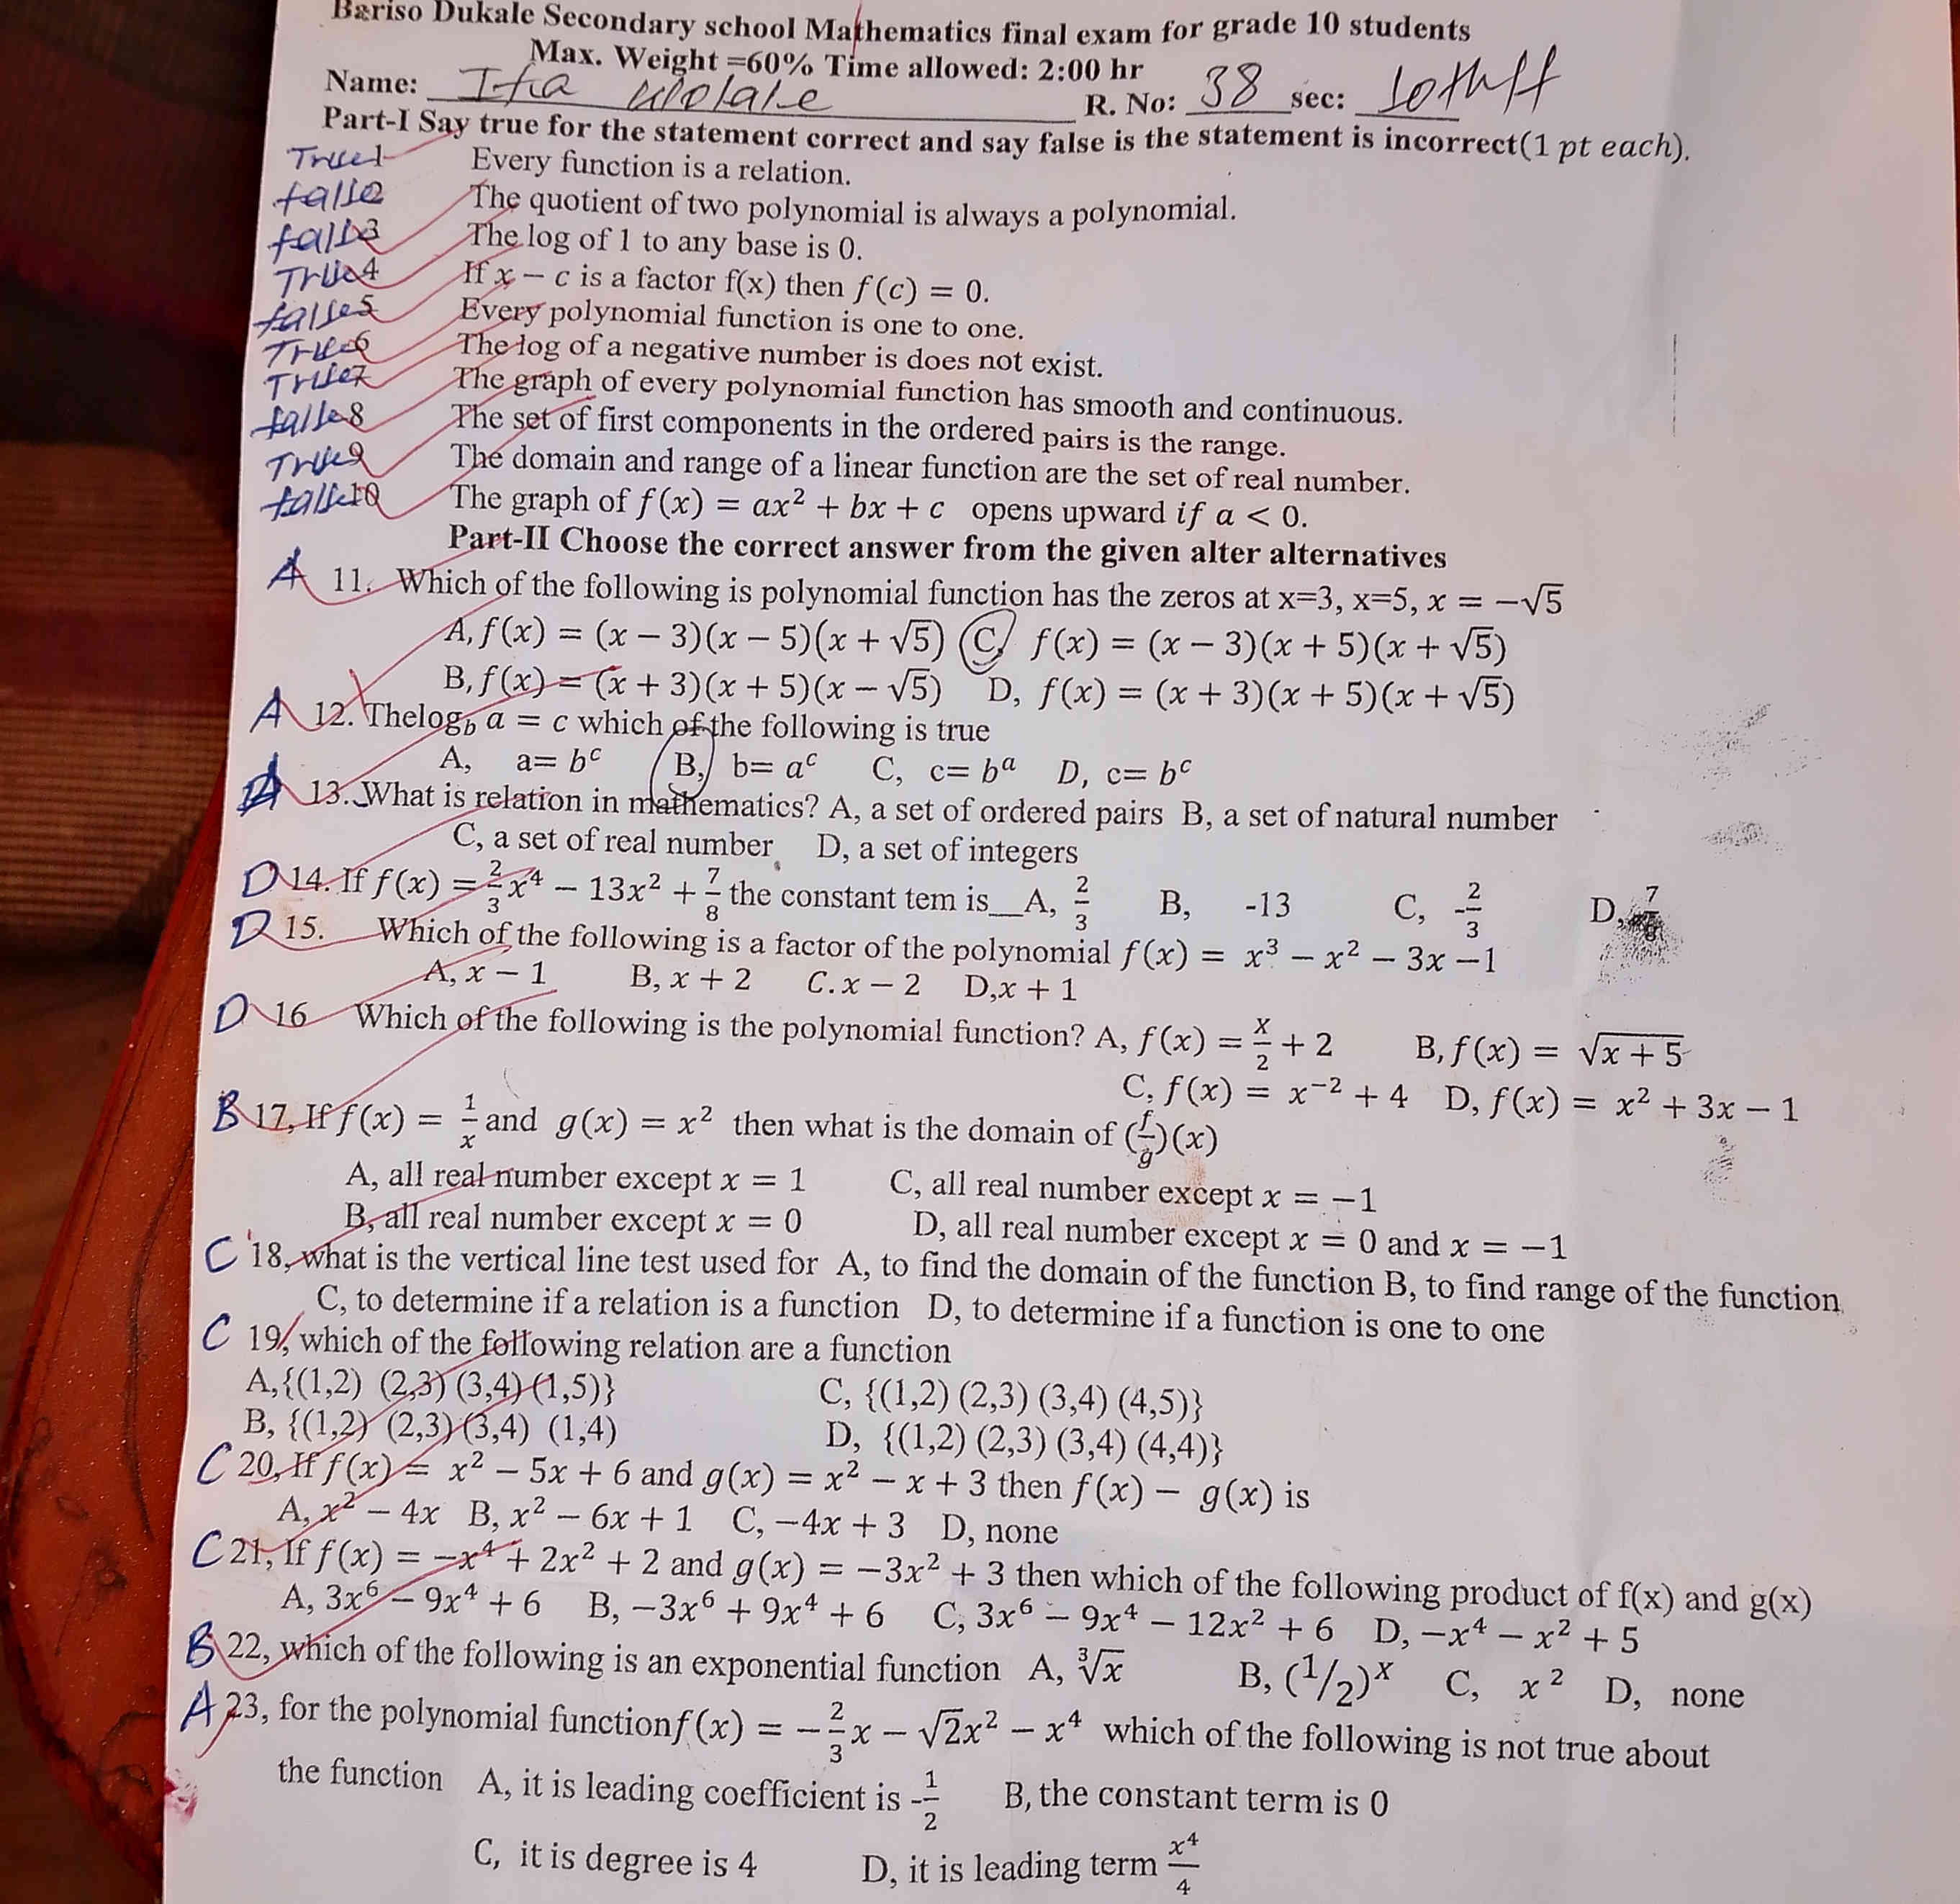 Bariso Dukale Secondary school Mathematics final exam for grade 10 students
Max. Weight =60% Time allowed: 2:00 hr
Name: R. No: 38 sec:
Part-I Say true for the statement correct and say false is the statement is incorrect(1 pt each).
True 1 Every function is a relation.
false 2 The quotient of two polynomial is always a polynomial.
false 3 The log of 1 to any base is 0.
True 4 If x − c is a factor f(x) then f(c) = 0.
false 5 Every polynomial function is one to one.
True 6 The log of a negative number is does not exist.
True 7 The graph of every polynomial function has smooth and continuous.
false 8 The set of first components in the ordered pairs is the range.
True 9 The domain and range of a linear function are the set of real number.
false 10 The graph of f(x) = ax² + bx + c opens upward if a < 0.
Part-II Choose the correct answer from the given alter alternatives
A 11. Which of the following is polynomial function has the zeros at x=3, x=5, x = −√5
A, f(x) = (x − 3)(x − 5)(x + √5) C, f(x) = (x − 3)(x + 5)(x + √5)
B, f(x) = (x + 3)(x + 5)(x − √5) D, f(x) = (x + 3)(x + 5)(x + √5)
A 12. Thelog_b a = c which of the following is true
A, a= bᶜ B, b= aᶜ C, c= bᵃ D, c= bᶜ
A 13. What is relation in mathematics? A, a set of ordered pairs B, a set of natural number
C, a set of real number D, a set of integers
D 14. If f(x) = 2/3 x⁴ − 13x² + 7/8 the constant tem is__A, 2/3 B, -13 C, -2/3 D, 7/8
D 15. Which of the following is a factor of the polynomial f(x) = x³ − x² − 3x −1
A, x − 1 B, x + 2 C. x − 2 D,x + 1
D 16 Which of the following is the polynomial function? A, f(x) = x/2 + 2 B, f(x) = √(x + 5)
C, f(x) = x⁻² + 4 D, f(x) = x² + 3x − 1
B 17, If f(x) = 1/x and g(x) = x² then what is the domain of (f/g)(x)
A, all real number except x = 1 C, all real number except x = −1
B, all real number except x = 0 D, all real number except x = 0 and x = −1
C 18, what is the vertical line test used for A, to find the domain of the function B, to find range of the function
C, to determine if a relation is a function D, to determine if a function is one to one
C 19, which of the following relation are a function
A,{(1,2) (2,3) (3,4) (1,5)} C, {(1,2) (2,3) (3,4) (4,5)}
B, {(1,2) (2,3) (3,4) (1,4) D, {(1,2) (2,3) (3,4) (4,4)}
C 20, If f(x) = x² − 5x + 6 and g(x) = x² − x + 3 then f(x) − g(x) is
A, x² − 4x B, x² − 6x + 1 C, −4x + 3 D, none
C 21, If f(x) = −x⁴ + 2x² + 2 and g(x) = −3x² + 3 then which of the following product of f(x) and g(x)
A, 3x⁶ − 9x⁴ + 6 B, −3x⁶ + 9x⁴ + 6 C, 3x⁶ − 9x⁴ − 12x² + 6 D, −x⁴ − x² + 5
B 22, which of the following is an exponential function A, ∛x B, (1/2)ˣ C, x² D, none
A 23, for the polynomial functionf(x) = −2/3 x − √2x² − x⁴ which of the following is not true about
the function A, it is leading coefficient is -1/2 B, the constant term is 0
C, it is degree is 4 D, it is leading term x⁴/4